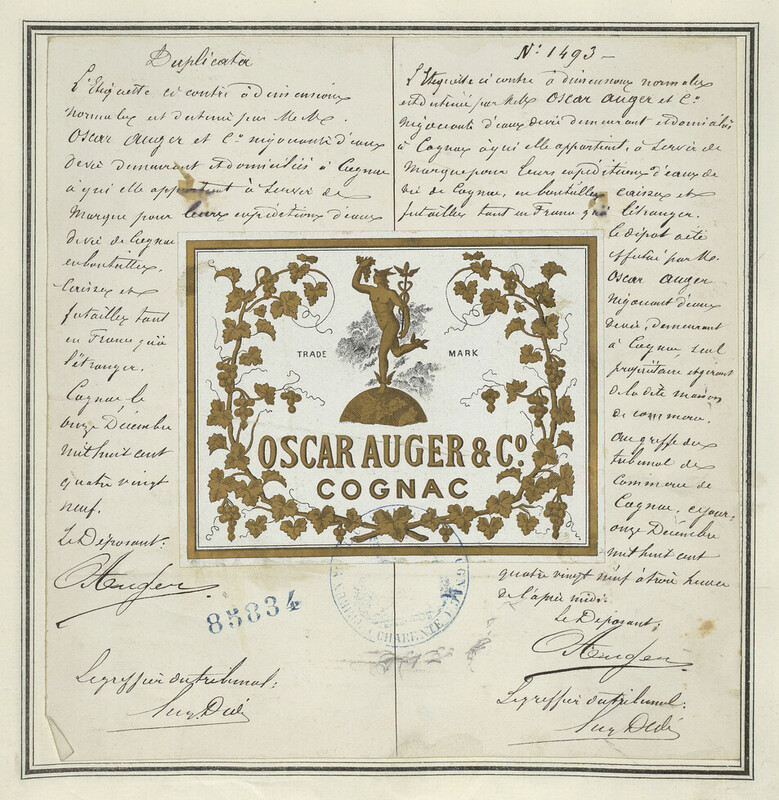 Duplicata
L'Etiquette ci contre à dimensions
normales est destinée par M.M.
Oscar Auger et Cº négociants d'eaux
de vie demeurant et domiciliés à Cognac
à qui elle appartient à servir de
Marque pour leurs expéditions d'eaux
de vie de Cognac
en bouteilles,
Caisses et
futailles tant
en France qu'à
l'étranger.
Cognac, le
onze Décembre
mil huit cent
quatre vingt
neuf.
Le Déposant:
OAuger
85834
Le greffier du tribunal:
Nº 1493 –
L'Etiquette ci contre à dimensions normales
est destinée par M.M. Oscar Auger et Cº
négociants d'eaux de vie demeurant et domiciliés
à Cognac à qui elle appartient, à servir de
Marque pour leurs expéditions d'eaux de
vie de Cognac, en bouteilles caisses et
futailles tant en France qu'à l'étranger.
Le dépôt a été
effectué par M.
Oscar Auger
négociant d'eaux
de vie, demeurant
à Cognac, seul
propriétaire et gérant
de la dite maison
de commerce.
au greffe du
tribunal de
Commerce de
Cognac, ce jour:
onze Décembre
mil huit cent
quatre vingt neuf à trois heures
de l'après midi.
Le Déposant;
OAuger
Le greffier du tribunal:
TRADE MARK
OSCAR AUGER & Cº
COGNAC
CHARENTE